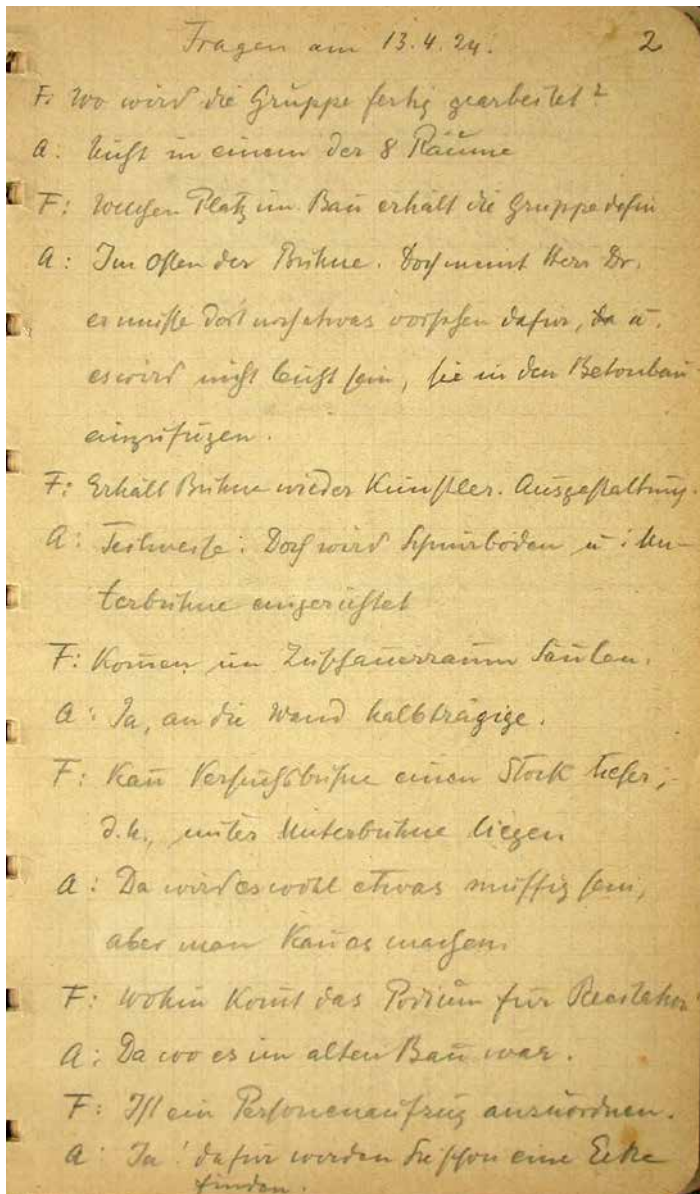 Fragen am 13.4.24. 2
F: Wo wird die Gruppe fertig gearbeitet?
A: Nicht in einem der 8 Räume
F: Welchen Platz im Bau erhält die Gruppe dafür
A: Im Osten der Bühne. Doch meint Herr Dr.
er müsste dort noch etwas vorsehen dafür, da u.
es wird nicht leicht sein, sie in den Betonbau
einzufügen.
F: Erhält Bühne wieder Künstler. Ausgestaltung.
A: Teilweise: Doch wird Schnürboden u: Un-
terbühne eingerichtet
F: Kom̅en im Zuschauerraum Säulen.
A: Ja, an die Wand halbträgige.
F: Kan̅ Versuchsbühne einen Stock tiefer,
d.h., unter Unterbühne liegen
A: Da wird es wohl etwas muffig sein,
aber man kan̅ es machen
F: Wohin kom̅t das Podium für Rezitation
A: Da wo es im alten Bau war.
F: Ist ein Personenaufzug anzuordnen.
A: Ja! dafür werden Sie schon eine Ecke
finden.